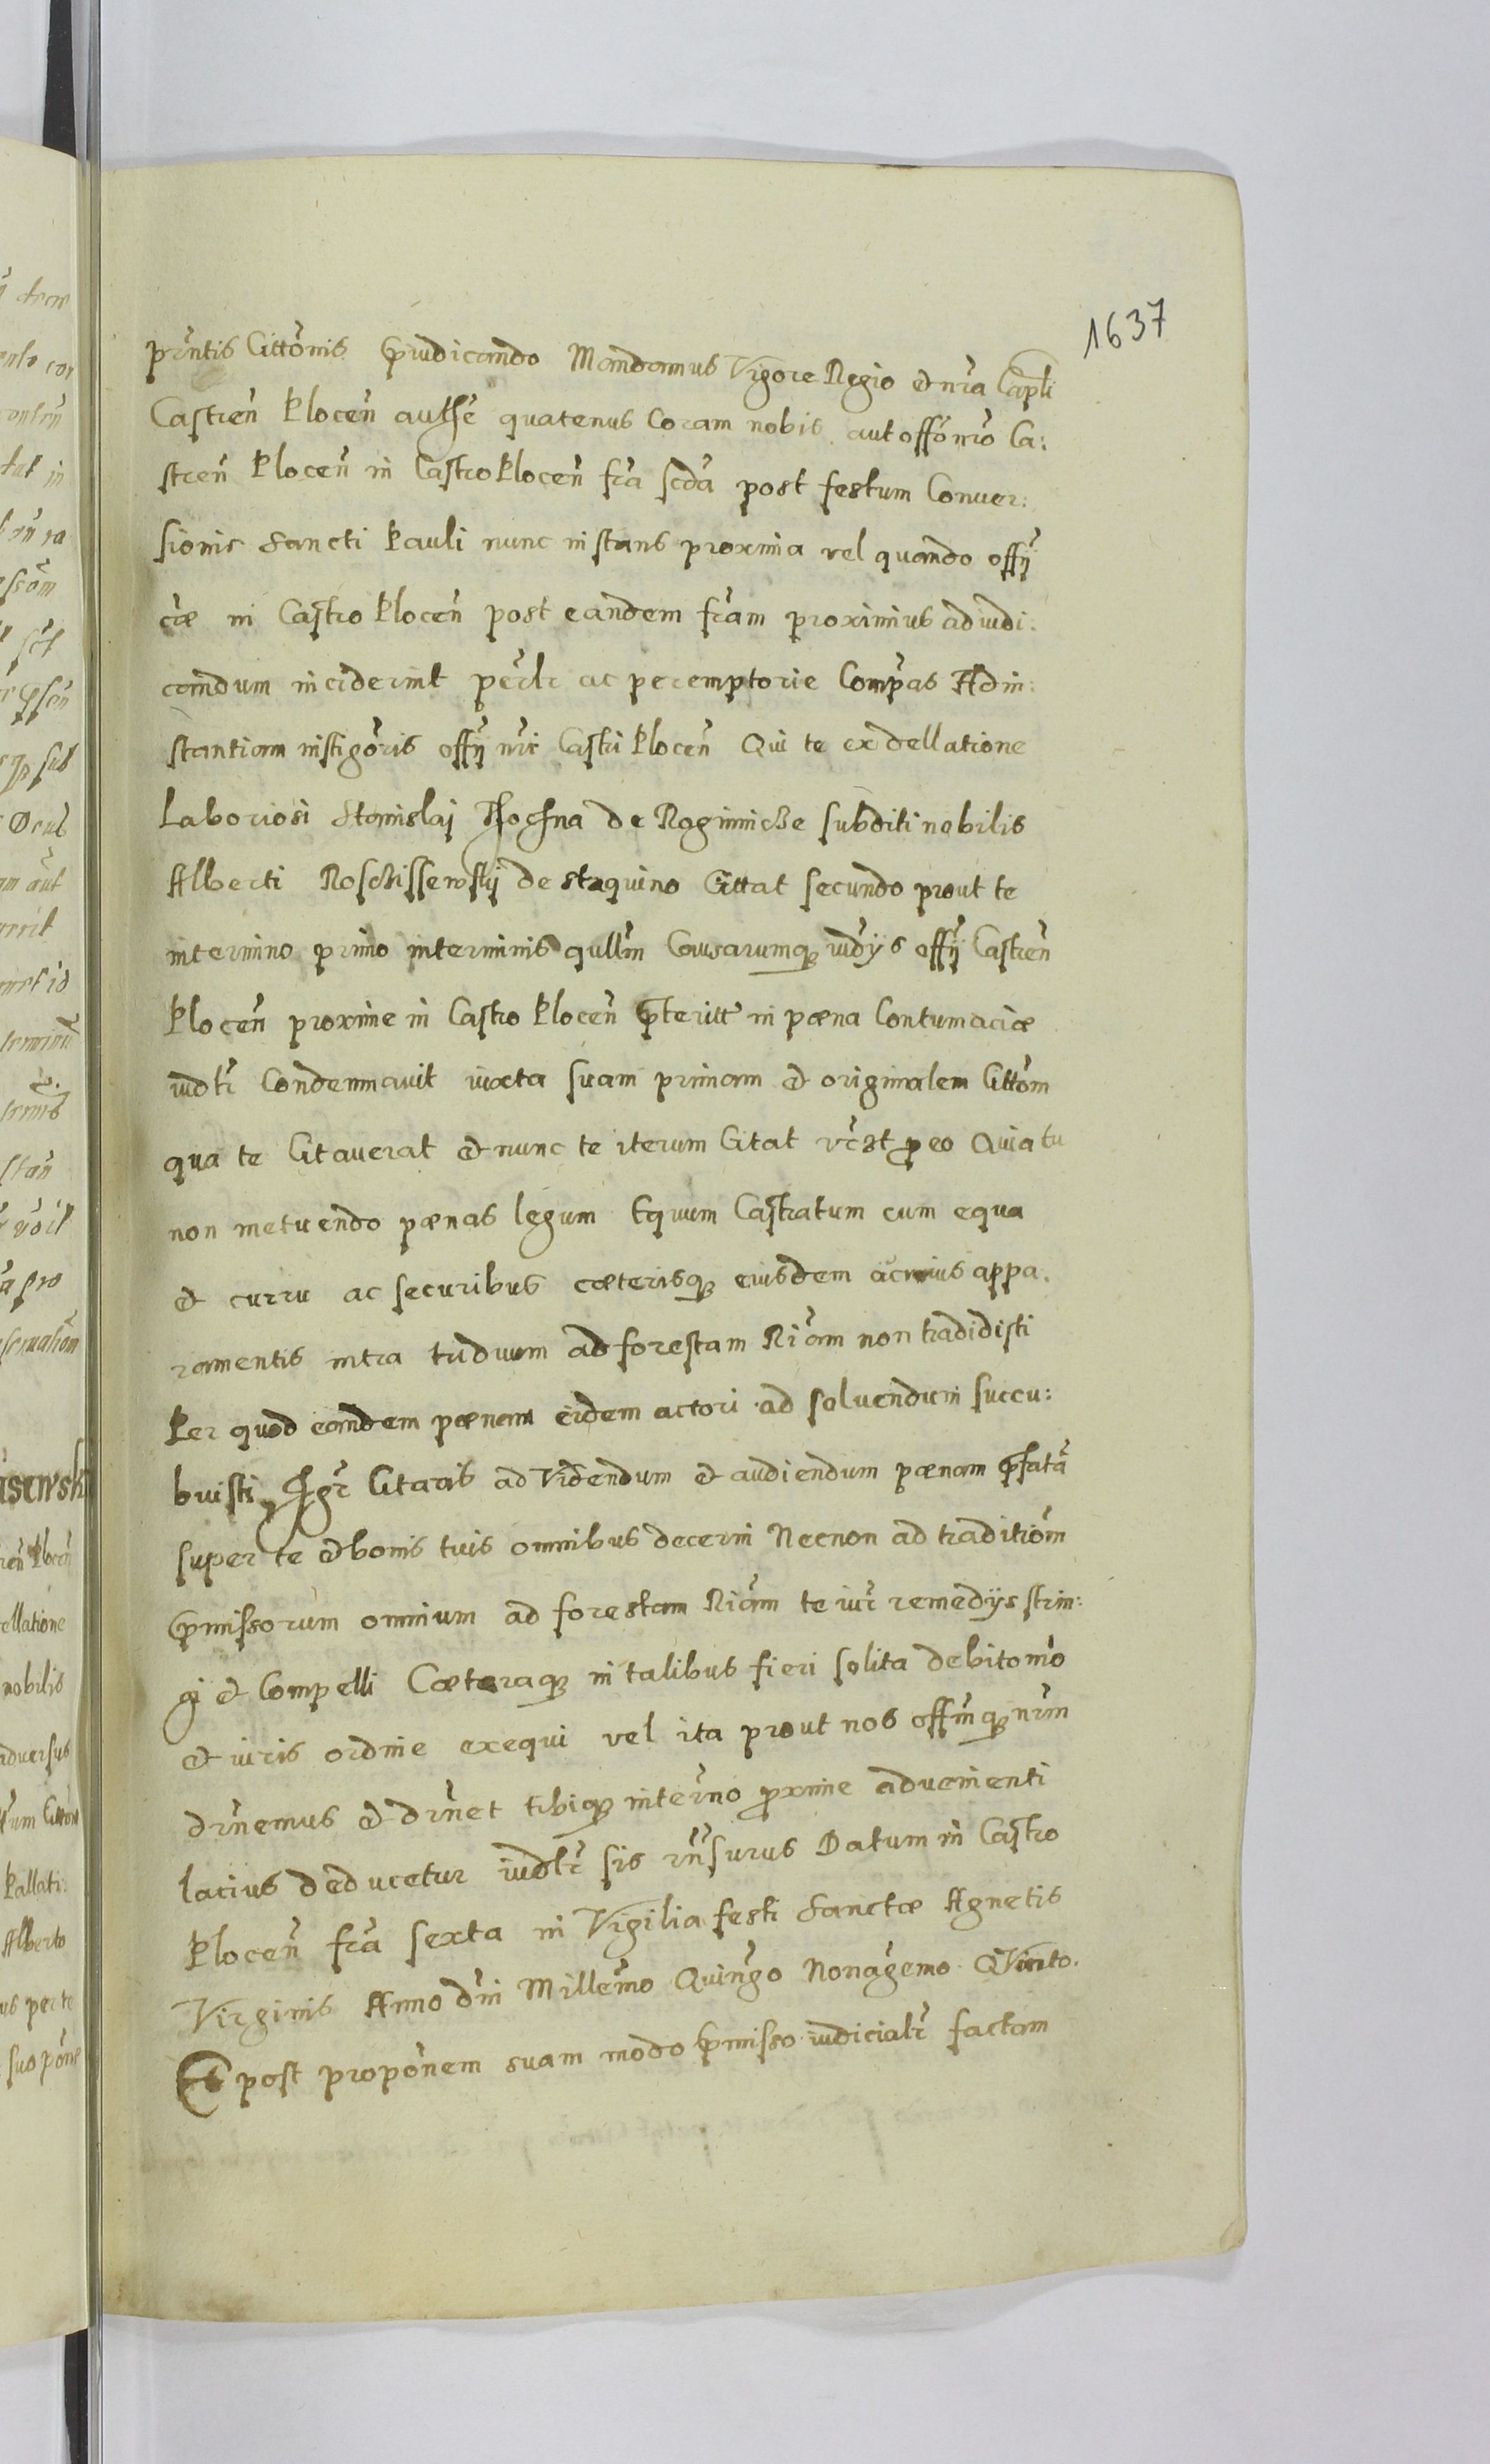 1637
prñtis Cittõnis p̃iudicando Mandamus Vigore Regio et nr̃a Capli
Castreñ Plocen̄ autħe quatenus Coram nobis aut offõ nr̃o Ca:
streñ Plocen̄ in Castro Plocen̄ fr̃a scd̃a post festum Conuer:
sionis Sancti Pauli nunc instans proxima vel quando offÿ
cãe in Castro Plocen̄ post eandem fr̃am proximius adiudi:
candum inciderint per̃lr ac peremptorie Comp̃as Ad in:
stantiam instigõris offÿ nr̃i Castri Plocen̄ Qui te ex dellatione
Laboriosi Stanislaj de subditi nobilis
Alberti de Staquino Cittat secundo prout te
in termino primo in terminis qr̃llm̃ Causarumq iud̃ys offÿ Castreñ
Plocen̄ proxime in Castro Plocen̄ p̃teritt in pæna Contumaciæ
iudlr̃ Condemnauit iuxta suam primam et originalem Cittõm
qua te Citauerat et nunc te iterum Citat vc̃zt p eo Quia tu
non metuendo pænas legum Equum Castratum cum equa
et curru ac securibus cæterisq eiusdem appa.
ramentis intra triduum ad forestam Ri̇̃am non tradidisti
Per quod eandem pænam eidem actori ad soluendum succu:
buisti Igr̃ Citaris ad Videndum et audiendum pænam p̃fatã
super te et bonis tuis omnibus decerni Necnon ad traditiõm
p̃missorum omnium ad forestam Riãm te iur̃ remedÿs strin:
gi et Compelli Cæteraq in talibus fieri solita debito mõ
et iuris ordine exequi vel ita prout nos offm̃q nr̃m
dr̃nemus et dr̃net tibiq in ter̃no pxime aduenienti
lacius deducetur iudlr̃ sis rñsurus Datum in Castro
Plocen̄ fr̃a sexta in Vigilia festi Sanctæ Agnetis
Virginis Anno dn̄i Millem̃o Quingo Nonagẽmo Quinto.
Et post propõnem suam modo p̃misso iudicialr̃ factam